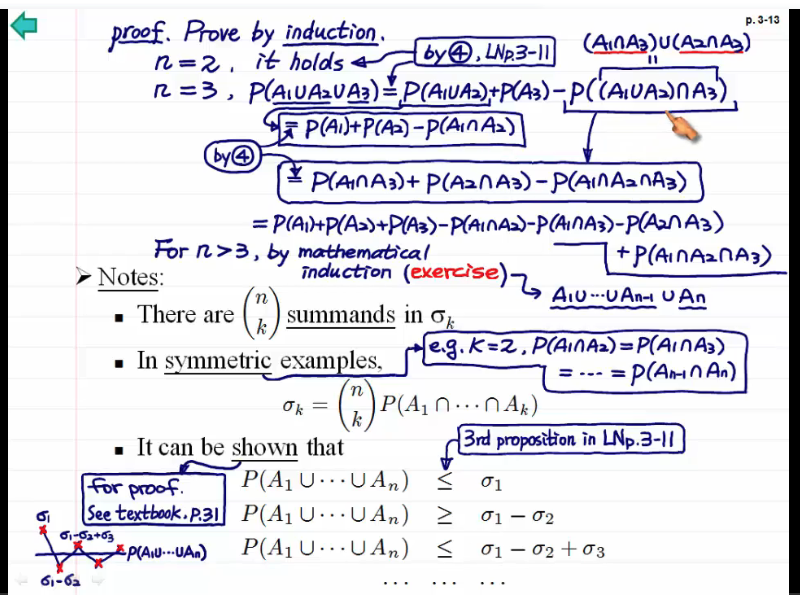 p. 3-13
proof. Prove by induction.
(A1∩A3)∪(A2∩A3)
n=2, it holds
by ④, LNp.3-11
=
n=3, P(A1∪A2∪A3) = P(A1∪A2)+P(A3)-P((A1∪A2)∩A3)
= P(A1)+P(A2)-P(A1∩A2)
by ④
= P(A1∩A3)+P(A2∩A3)-P(A1∩A2∩A3)
= P(A1)+P(A2)+P(A3)-P(A1∩A2)-P(A1∩A3)-P(A2∩A3)
+P(A1∩A2∩A3)
For n>3, by mathematical
induction (exercise)
A1∪⋯∪An-1 ∪ An
➢ Notes:
▪ There are (n k) summands in σk
▪ In symmetric examples,
e.g. K=2, P(A1∩A2)=P(A1∩A3)
= ⋯ = P(An-1∩An)
σk = (n k) P(A1 ∩ ⋯ ∩ Ak)
▪ It can be shown that
3rd proposition in LNp.3-11
for proof.
See textbook. P.31
P(A1 ∪ ⋯ ∪ An) ≤ σ1
P(A1 ∪ ⋯ ∪ An) ≥ σ1 − σ2
P(A1 ∪ ⋯ ∪ An) ≤ σ1 − σ2 + σ3
⋯ ⋯ ⋯
σ1
σ1-σ2+σ3
P(A1∪⋯∪An)
σ1-σ2